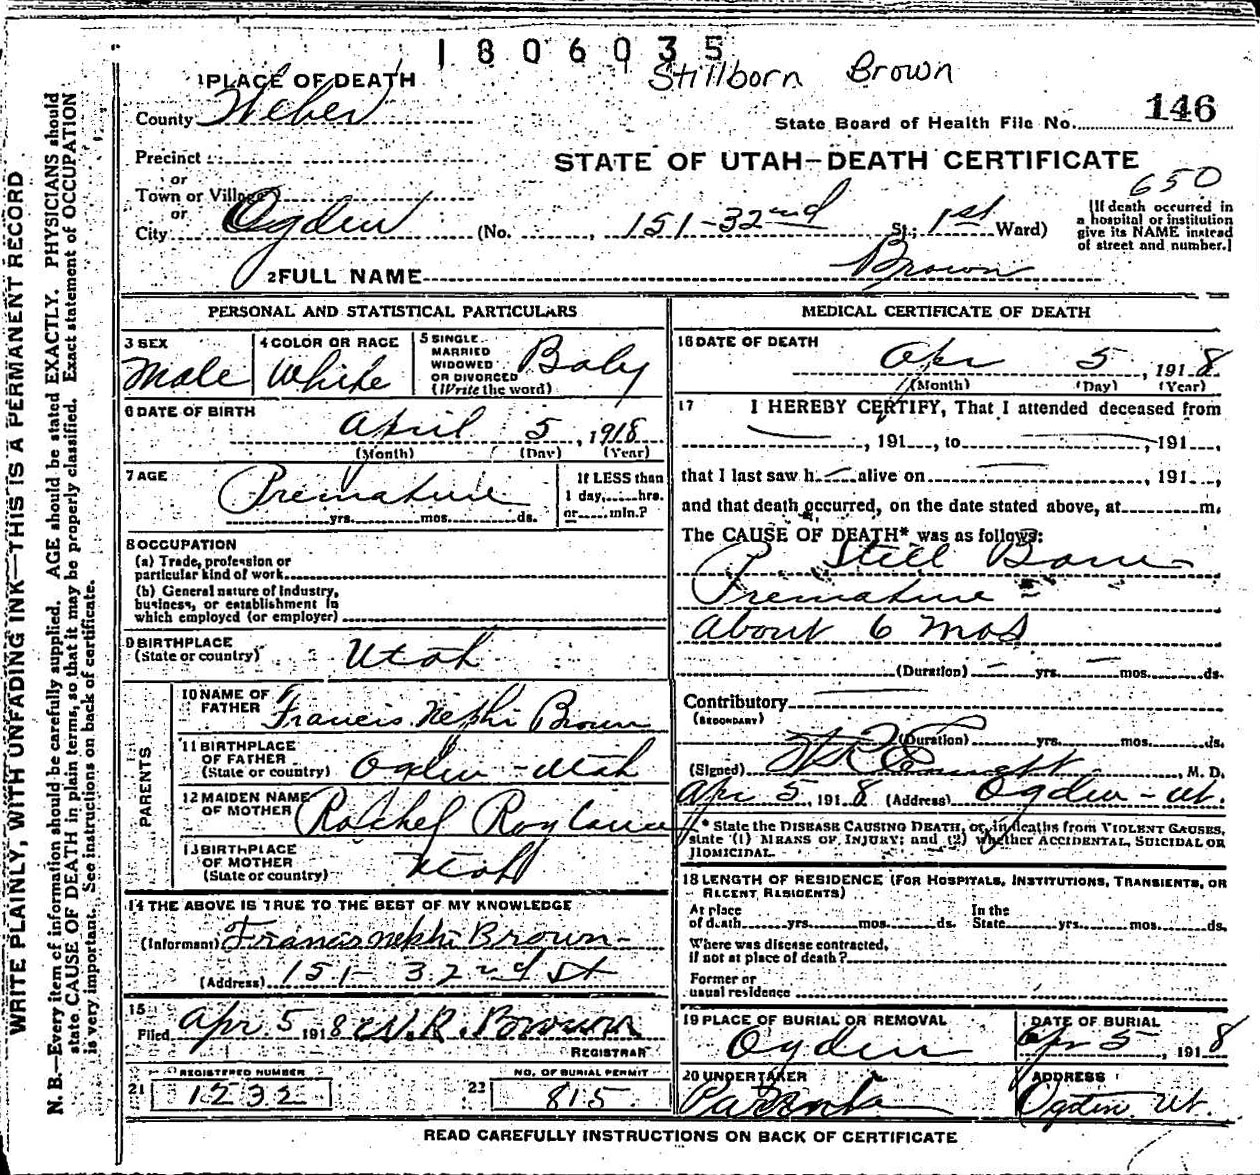 1806035
Stillborn Brown
1 PLACE OF DEATH
County Weber
State Board of Health File No. 146
Precinct
STATE OF UTAH—DEATH CERTIFICATE
or
Town or Village
or
650
City Ogden (No. , 151-32nd St.; 1st Ward)
[If death occurred in a hospital or institution give its NAME instead of street and number.]
2 FULL NAME Brown
PERSONAL AND STATISTICAL PARTICULARS
3 SEX
Male
4 COLOR OR RACE
White
5 SINGLE
MARRIED
WIDOWED
OR DIVORCED
(Write the word)
Baby
6 DATE OF BIRTH
April 5, 1918
(Month) (Day) (Year)
7 AGE
Premature
yrs. mos. ds.
If LESS than
1 day, hrs.
or min.?
8 OCCUPATION
(a) Trade, profession or
particular kind of work
(b) General nature of Industry,
business, or establishment in
which employed (or employer)
9 BIRTHPLACE
(State or country) Utah
PARENTS
10 NAME OF
FATHER Francis Nephi Brown
11 BIRTHPLACE
OF FATHER
(State or country) Ogden - Utah
12 MAIDEN NAME
OF MOTHER Rachel Roylance
13 BIRTHPLACE
OF MOTHER
(State or country) Utah
14 THE ABOVE IS TRUE TO THE BEST OF MY KNOWLEDGE
(Informant) Francis Nephi Brown
(Address) 151- 32nd St
15
Filed Apr 5 1918 W.R. Brown
REGISTRAR
REGISTERED NUMBER
21 1232
NO. OF BURIAL PERMIT
22 815
MEDICAL CERTIFICATE OF DEATH
16 DATE OF DEATH
Apr 5, 1918
(Month) (Day) (Year)
17 I HEREBY CERTIFY, That I attended deceased from
, 191 , to 191 ,
that I last saw h alive on , 191 ,
and that death occurred, on the date stated above, at m.
The CAUSE OF DEATH* was as follows:
Still Born
Premature -
About 6 mos
(Duration) yrs. mos. ds.
Contributory
(SECONDARY)
(Duration) yrs. mos. ds.
(Signed) , M. D.
Apr 5, 1918 (Address) Ogden - Ut.
* State the DISEASE CAUSING DEATH, or, in deaths from VIOLENT CAUSES,
state (1) MEANS OF INJURY; and (2) whether ACCIDENTAL, SUICIDAL OR
HOMICIDAL.
18 LENGTH OF RESIDENCE (FOR HOSPITALS, INSTITUTIONS, TRANSIENTS, OR
RECENT RESIDENTS)
At place
of death yrs. mos. ds.
In the
State yrs. mos. ds.
Where was disease contracted,
if not at place of death?
Former or
usual residence
19 PLACE OF BURIAL OR REMOVAL
Ogden
DATE OF BURIAL
Apr 5, 1918
20 UNDERTAKER
Parents
ADDRESS
Ogden Ut.
READ CAREFULLY INSTRUCTIONS ON BACK OF CERTIFICATE
WRITE PLAINLY, WITH UNFADING INK—THIS IS A PERMANENT RECORD
N. B.—Every item of information should be carefully supplied. AGE should be stated EXACTLY. PHYSICIANS should
state CAUSE OF DEATH in plain terms, so that it may be properly classified. Exact statement of OCCUPATION
is very important. See instructions on back of certificate.